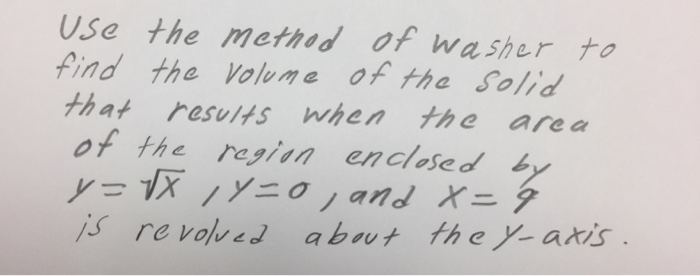 Use the method of washer to
find the Volume of the Solid
that results when the area
of the region enclosed by
y = √x , y = 0 , and x = 9
is revolved about the y-axis.